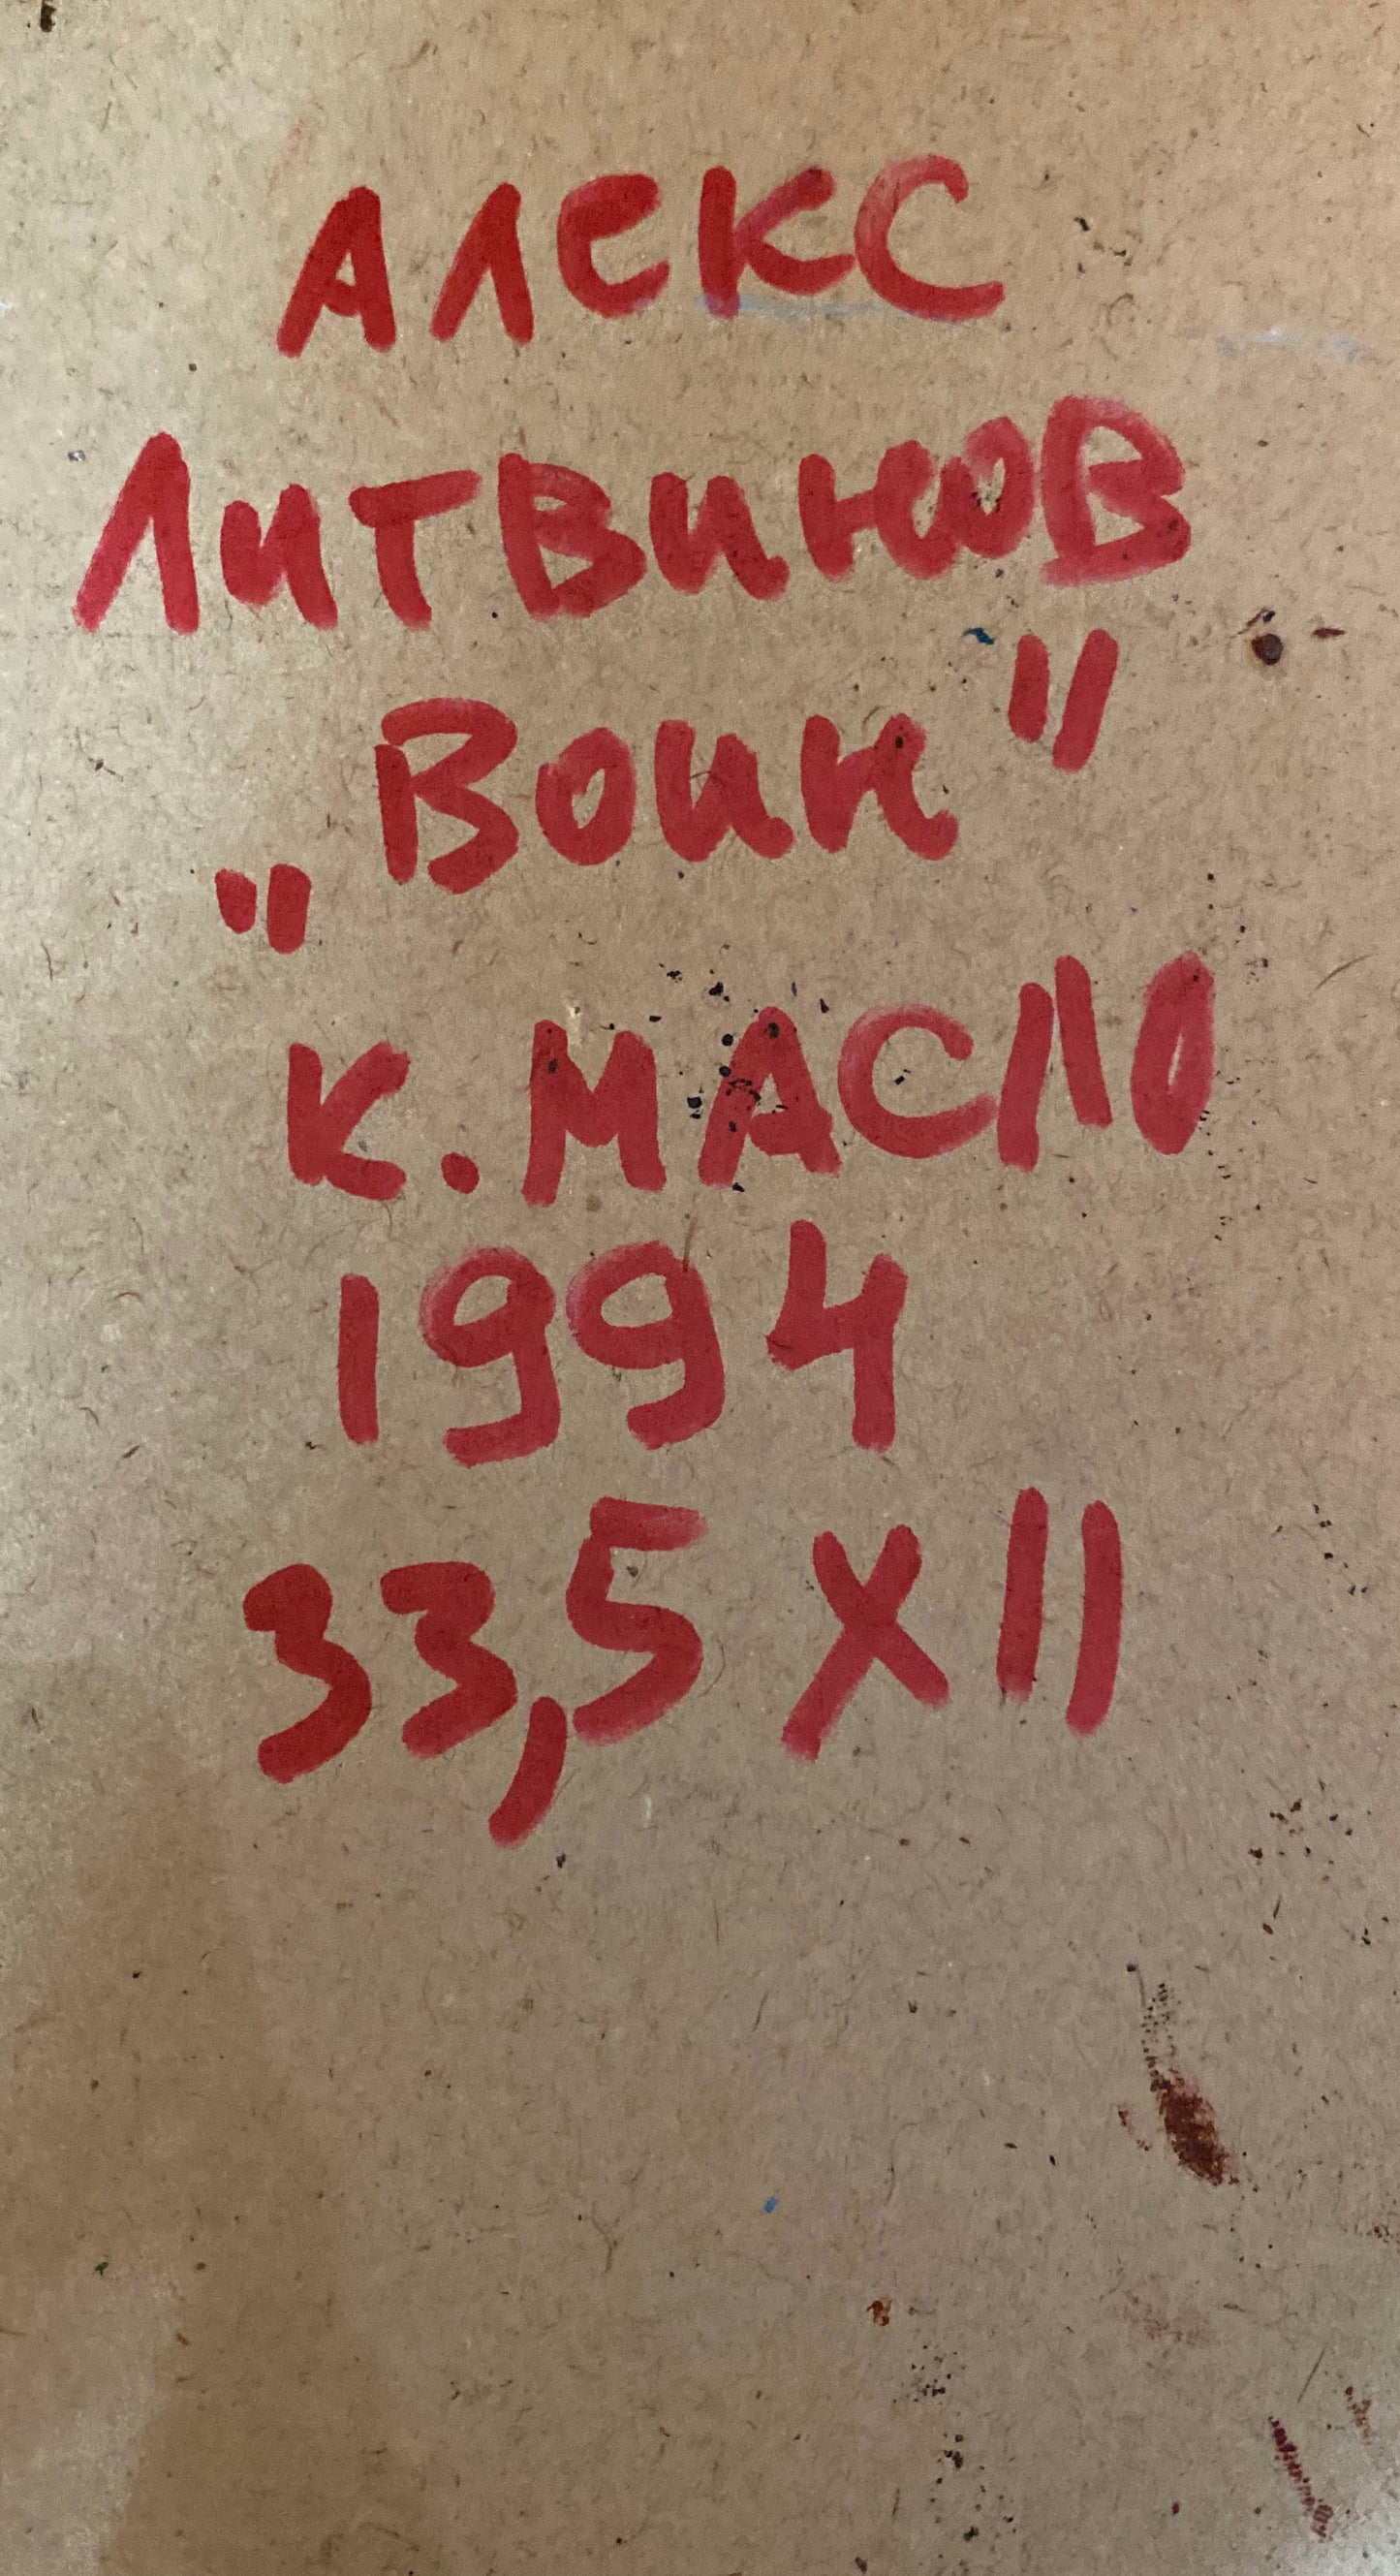 АЛЕКС
Литвинов
„Воин"
К. МАСЛО
1994
33,5 X 11